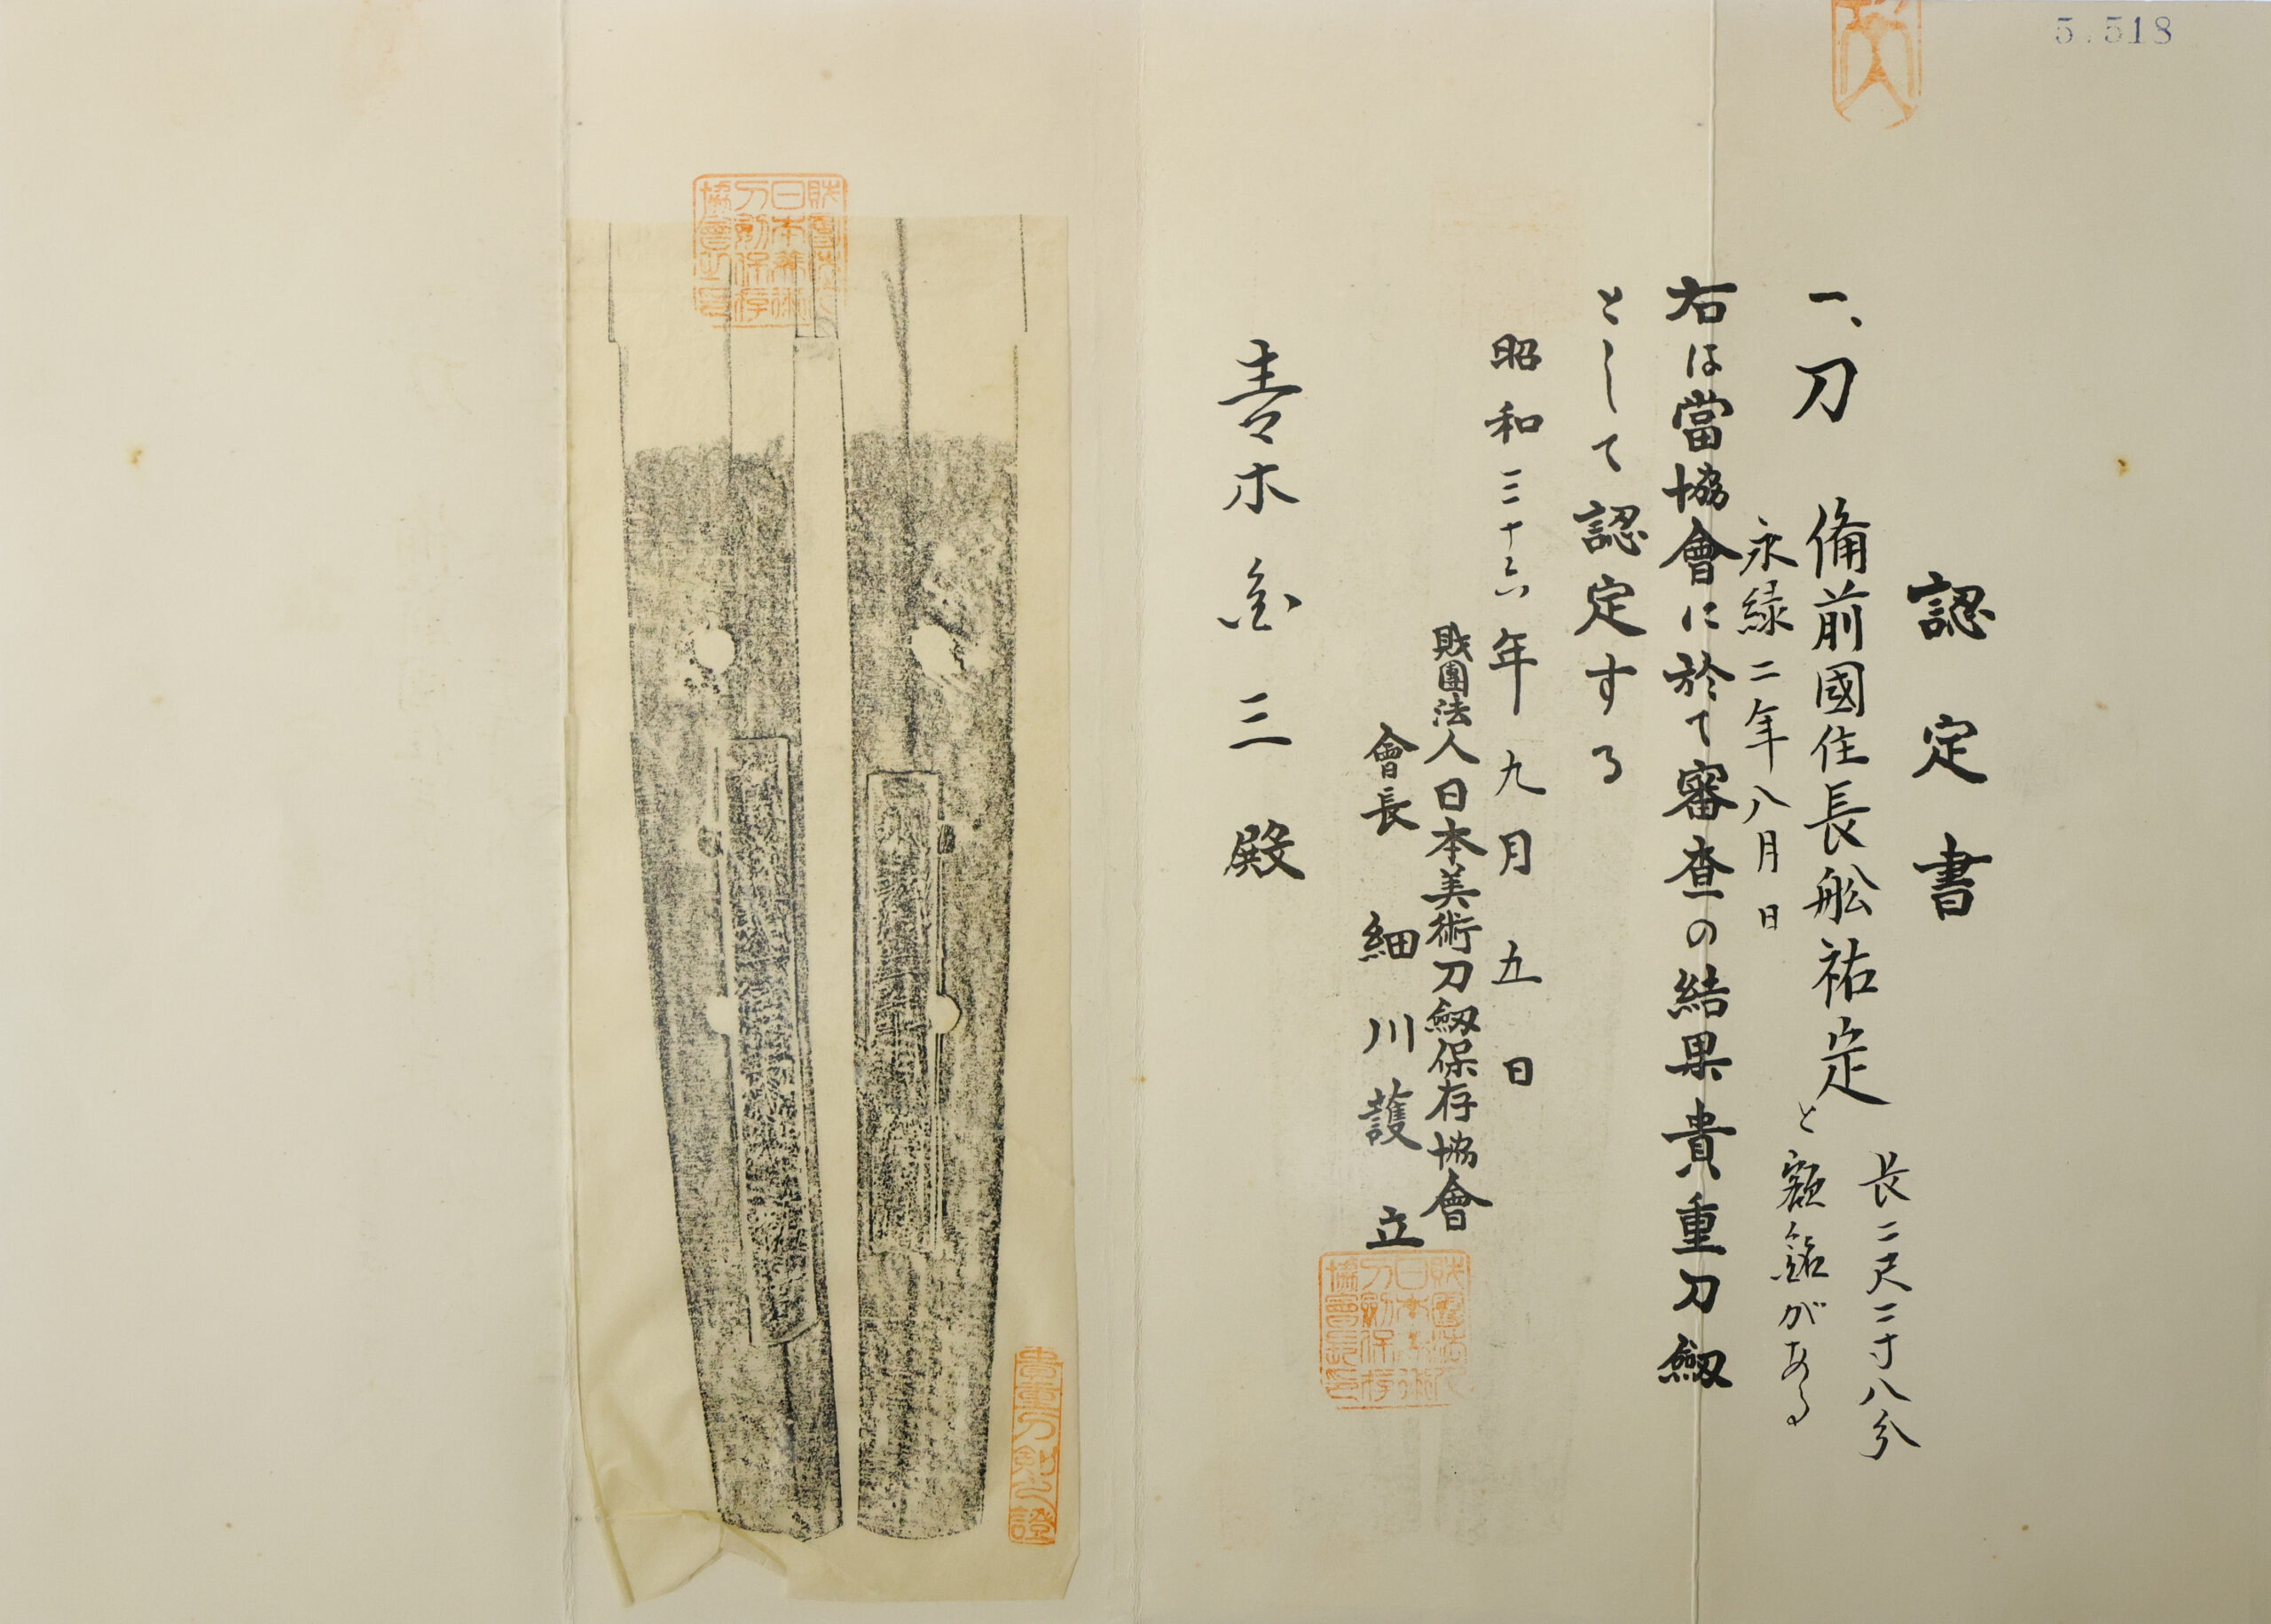 5.518
認定書
一、刀 備前國住長舩祐定と額銘がある
長二尺二寸八分
永緑二年八月日
右は當協會に於て審査の結果貴重刀劔
として認定する
昭和三十六年九月五日
財團法人日本美術刀劔保存協會
會長 細川護立
青木金三殿
財團法人日本美術刀劍保存協會長印
貴重刀劍之證